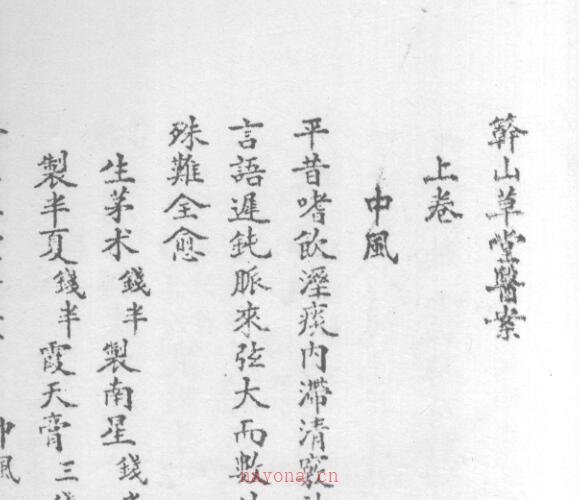 簳山草堂醫案
上卷
中風
平昔嗜飲溼痰内滯清竅
言語遲鈍脈來弦大而數
殊難全愈
生茅术錢半製南星錢
製半夏錢半霞天膏三
中風
nayona.cn